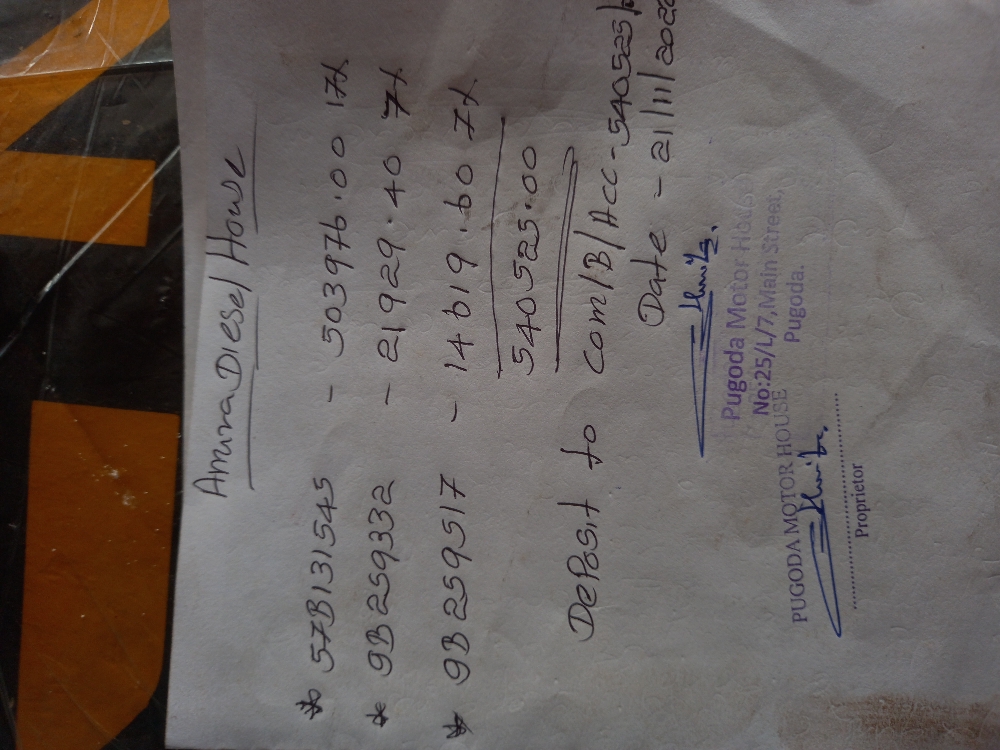 Amura Diesel House
* 57B131545 - 503976.00 17%
* 9B259332 - 21929.40 7%
* 9B259517 - 14619.60 7%
540525.00
Deposit to Com/B/Acc - 540525/
Date - 21/11/202
Pugoda Motor House
No:25/L/7,Main Street,
Pugoda.
PUGODA MOTOR HOUSE
Proprietor